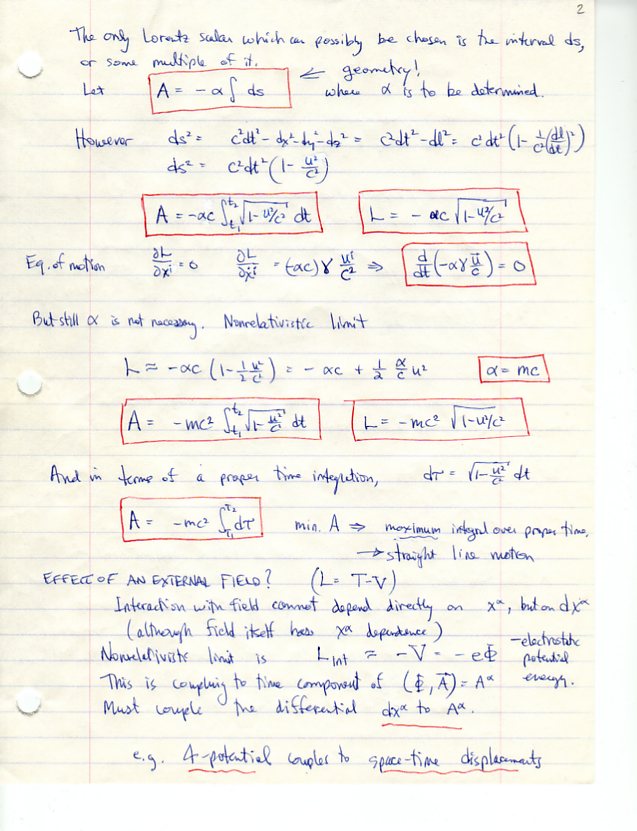 2
The only Lorentz scalar which can possibly be chosen is the interval ds,
or some multiple of it. ← geometry!
Let A = -α∫ ds where α is to be determined.
However ds² = c²dt² - dx² - dy² - dz² = c²dt² - dl² = c²dt² (1 - 1/c² (dl/dt)²)
ds² = c²dt² (1 - u²/c²)
A = -αc ∫_{t₁}^{t₂} √(1-u²/c²) dt L = -αc √(1-u²/c²)
Eq. of motion ∂L/∂xⁱ = 0 ∂L/∂ẋⁱ = (-αc)γ uⁱ/c² ⇒ d/dt(-αγ ū/c) = 0
But still α is not necessary. Nonrelativistic limit
L ≈ -αc (1 - 1/2 u²/c²) = -αc + 1/2 α/c u² α = mc
A = -mc² ∫_{t₁}^{t₂} √(1-u²/c²) dt L = -mc² √(1-u²/c²)
And in terms of a proper time integration, dτ = √(1-u²/c²) dt
A = -mc² ∫_{τ₁}^{τ₂} dτ min. A ⇒ maximum integral over proper time.
→ straight line motion
EFFECT OF AN EXTERNAL FIELD? (L = T-V)
Interaction with field cannot depend directly on xᵅ, but on dxᵅ
(although field itself has xᵅ dependence)
Nonrelativistic limit is L_Int ≈ -V = -eΦ - electrostatic potential energy.
This is coupling to time component of (Φ, A̅) = Aᵅ
Must couple the differential dxᵅ to Aᵅ.
e.g. 4-potential couples to space-time displacements